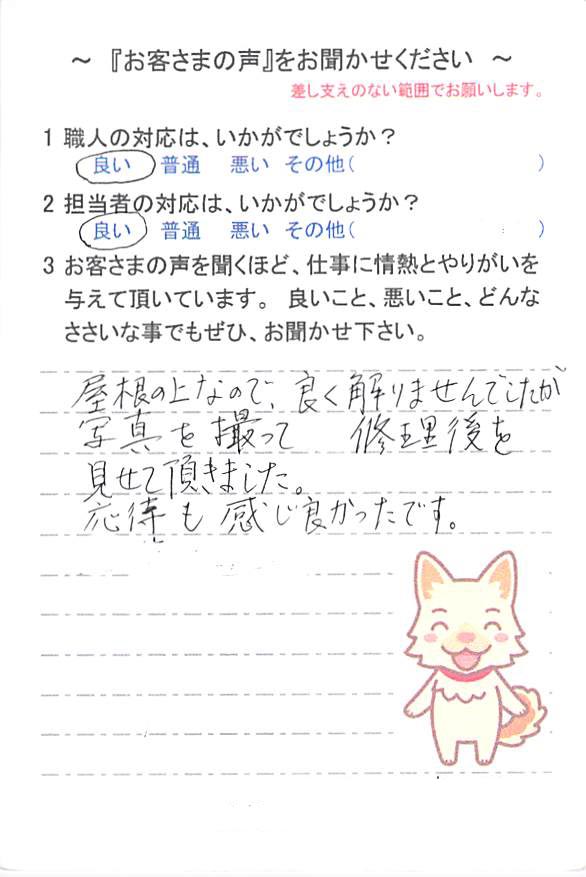 ～ 『お客さまの声』をお聞かせください ～
差し支えのない範囲でお願いします。
1 職人の対応は、いかがでしょうか？
良い 普通 悪い その他( )
2 担当者の対応は、いかがでしょうか？
良い 普通 悪い その他( )
3 お客さまの声を聞くほど、仕事に情熱とやりがいを
与えて頂いています。 良いこと、悪いこと、どんな
ささいな事でもぜひ、お聞かせ下さい。
屋根の上なので、良く解りませんでしたが
写真を撮って 修理後を
見せて頂きました。
応待も感じ良かったです。